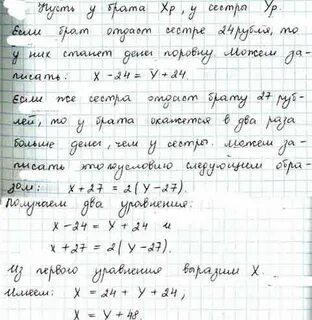 Пусть у брата Xр, у сестры Yр.
Если брат отдаст сестре 24 рубля, то
у них станет денег поровну. Можем за-
писать: X - 24 = Y + 24.
Если же сестра отдаст брату 27 руб-
лей, то у брата окажется в два раза
больше денег, чем у сестры. Можем за-
писать это условие следующим обра-
зом: X + 27 = 2(Y - 27).
Получаем два уравнения:
X - 24 = Y + 24 и
X + 27 = 2(Y - 27).
Из первого уравнения выразим X.
Имеем: X = 24 + Y + 24,
X = Y + 48.